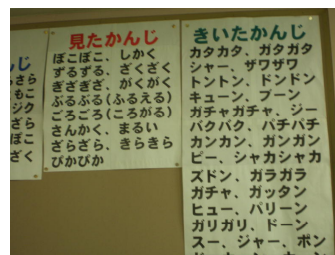 んじ
さら
もこ
ジク
ざら
ぼこ
ざく
見たかんじ
ぼこぼこ、しかく
ずるずる、ざくざく
ぎざぎざ、がくがく
ぶるぶる(ふるえる)
ごろごろ(ころがる)
さんかく、まるい
ざらざら、きらきら
ぴかぴか
きいたかんじ
カタカタ、ガタガタ
シャー、ザワザワ
トントン、ドンドン
キューン、ブーン
ガチャガチャ、ジー
バクバク、パチパチ
カンカン、ガンガン
ピー、シャカシャカ
ズドン、ガラガラ
ガチャ、ガッタン
ヒュー、バリーン
ガリガリ、ドーン
スー、ジャー、ポン